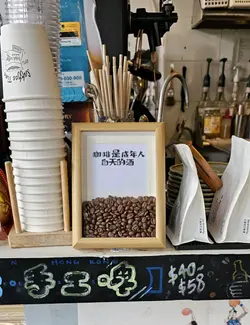 咖啡是成年人
白天的酒
HONG KONG
手工啤
$40
$58